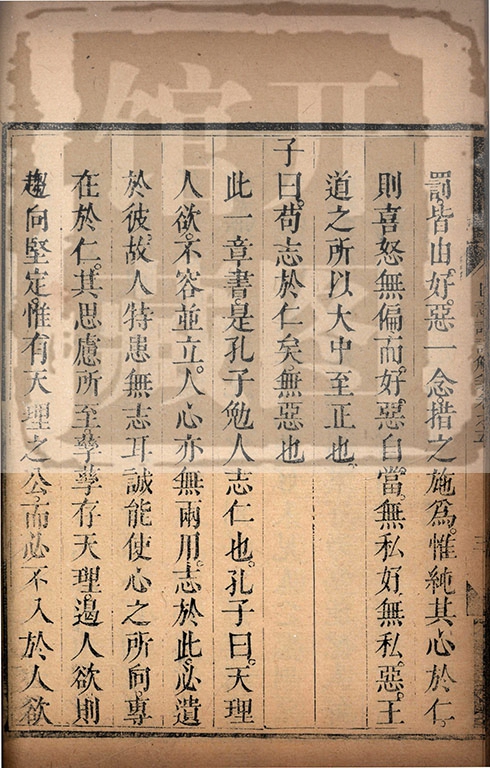 罰。皆由好。惡一念措之施爲。惟純其心於仁。
則喜怒無偏而好。惡自當。無私好無私惡。王
道之所以大中至正也。
子曰。苟志於仁矣。無惡也
此一章書。是孔子勉人志仁也。孔子曰。天理
人欲。不容並立。人心亦無兩用。志於此。必遺
於彼。故人特患無志耳。誠能使心之所向。專
在於仁。其思慮所至。孳孳存天理。遏人欲。則
趨向堅定。惟有天理之公。而必不入於人欲